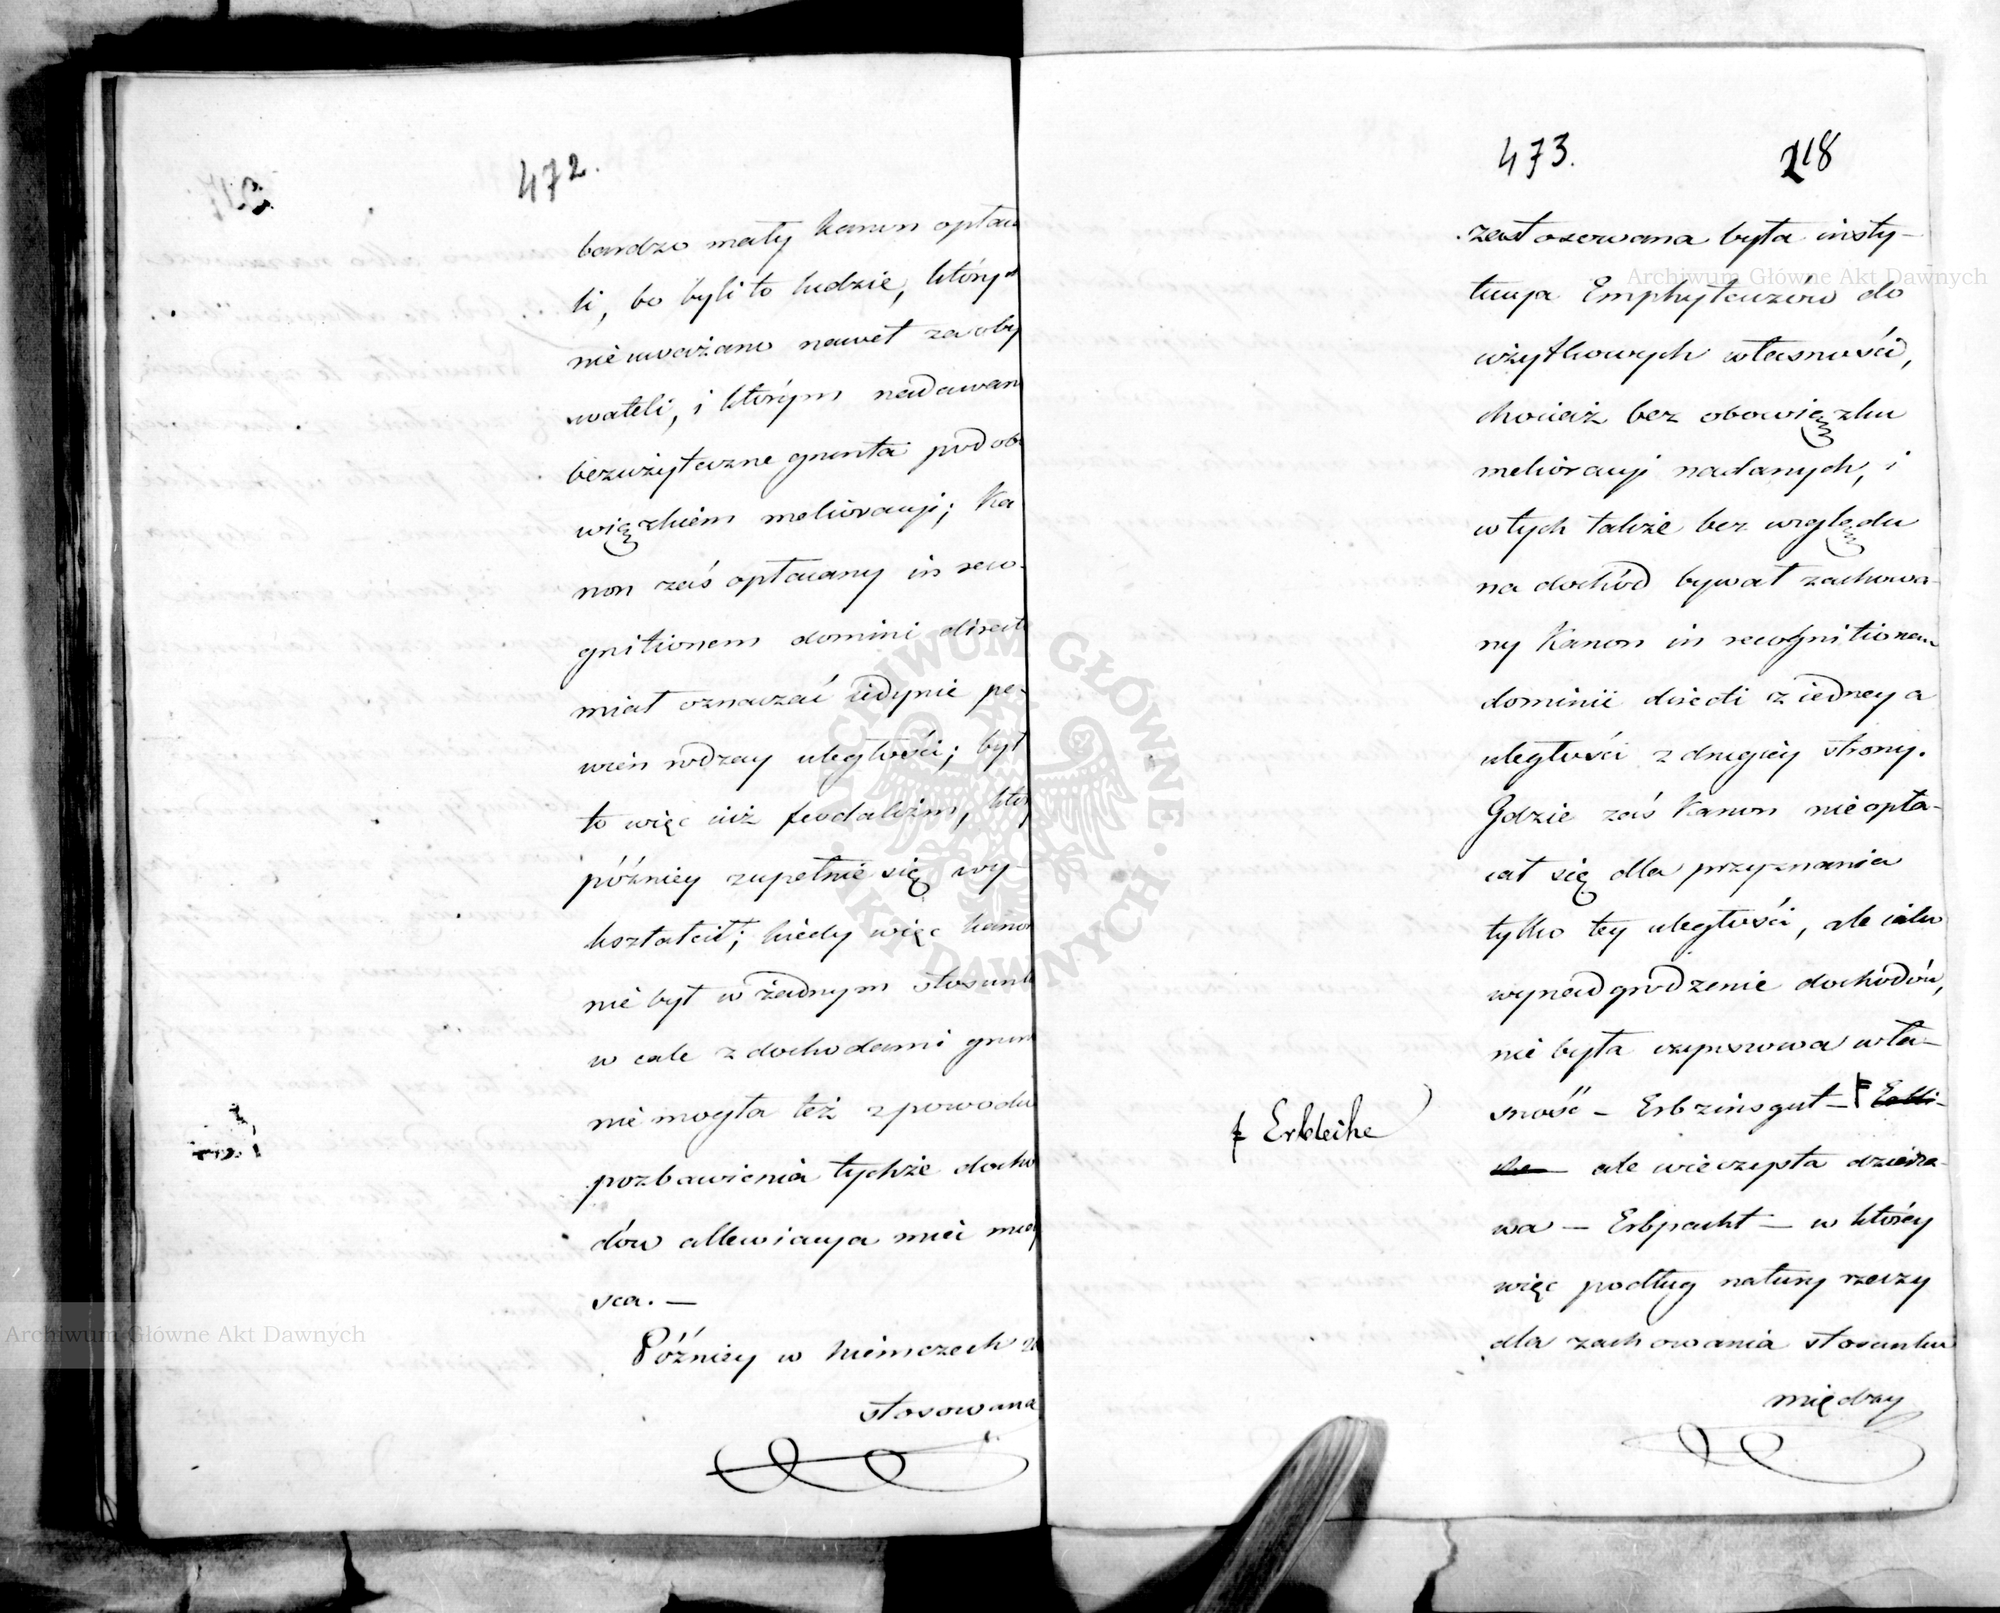 472.
bardzo mały kanon opłaca
li, bo byli to ludzie, których
nie uważano nawet za oby
wateli, i którym nadawano
bezużyteczne grunta pod obo
wiązkiem melioracyi; Ka
non zaś opłacany in reco-
gnitionem domini directi
miał oznaczać iedynie pe-
wien rodzay uległości; był
to więc iuż feodalizm, któ
późniey zupełnie się wy-
kształcił; kiedy więc kanon
nie był w żadnym stosunk
w cale z dochodami grun
nie mogła też z powodu
pozbawienia tychże docho
dów allewiacya mieć miey
sca. —
Późniey w Niemczech za
stosowana
473.
218
zastosowana była insty-
tucya Emphyteuzów do
użytkowych własności,
chociaż bez obowiązku
melioracyi nadanych, i
w tych także bez względu
na dochód bywał zachowa-
ny Kanon in recognitionem
dominii directi z iedney a
uległości z drugiey strony.
Gdzie zaś Kanon nie opła-
cał się dla przyznania
tylko tey uległości, ale iako
wynadgrodzenie dochodów,
nie była czynszowa wła-
sność — Erbzinsgut — F Erbli-
che ale wieczysta dzierża-
wa — Erbpacht — w którey
więc podług natury rzeczy
dla zachowania stosunku
między
F Erbleihe
Archiwum Główne Akt Dawnych
Archiwum Główne Akt Dawnych
ARCHIWUM GŁÓWNE AKT DAWNYCH